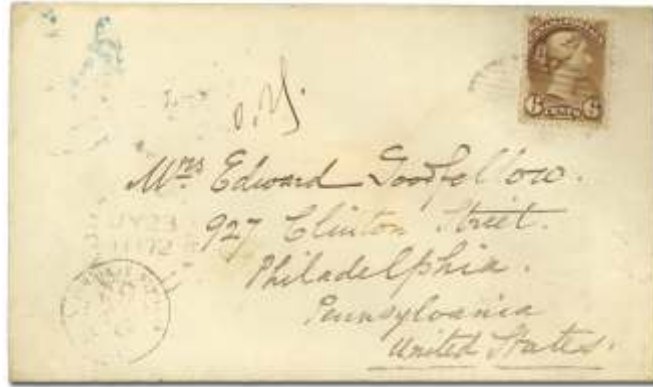 6 CENTS 6
Mrs Edward Goodfellow.
927 Clinton Street.
Philadelphia.
Pennsylvania
United States.
JY 23